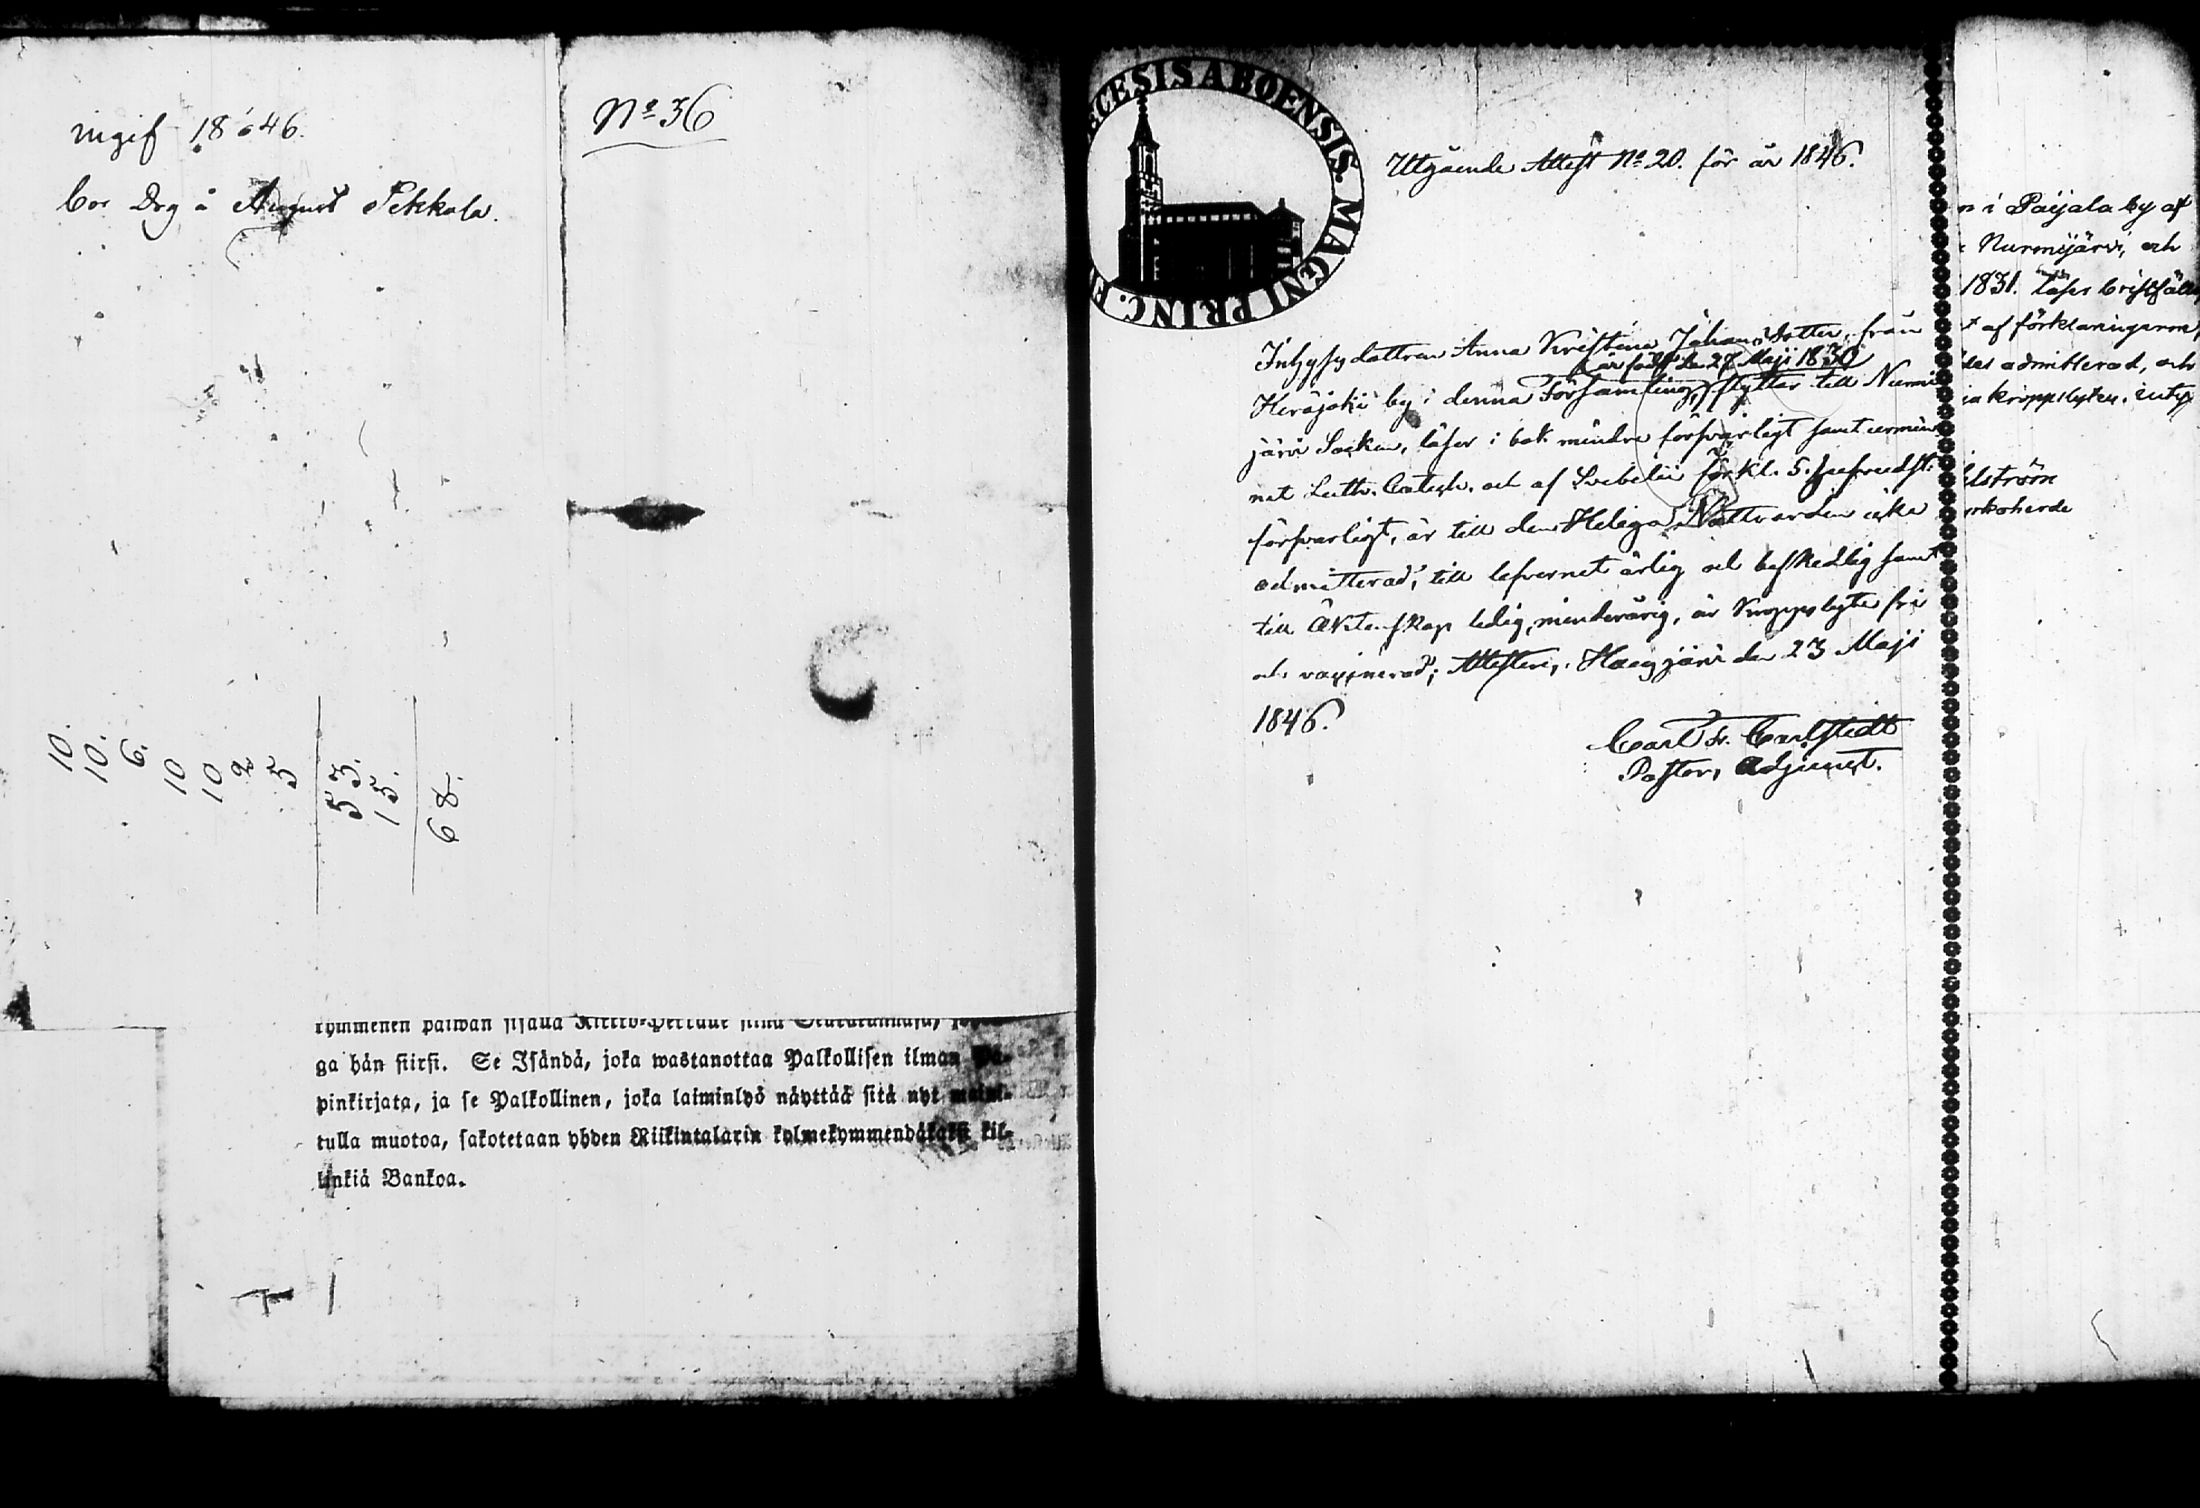 ingif 1846.
bor Drg å August Pekkala.
No 36
10.
10.
6.
10
10
2
5
53.
15.
68.
ga hän siirsi. Se Isändä, joka wastanottaa Palkollisen ilman Pa-
pinkirjata, ja se Palkollinen, joka laiminlyö näyttää sitä nyt maini-
tulla muotoa, sakotetaan yhden Riikintalarin kolmekymmendäkaksi kil-
linkiä Bankoa.
ECESIS ABOENSIS. MAGNI PRINC. F
Utgående Attest No 20. för år 1846.
Inhysg dottren Anna Kristina Johans dotter, från
är född den 27 Maji 1830
Herajoki by i denna Församling, flyttar till Nurmi
järvi Socken, läser i bok mindre försvarligt samt utmin
nat Luth. Catech. och af Svebelii förkl. 5. hufvudst:
försvarligt, är till den Heliga Nattvarden icke
admitterad, till lefvernet ärlig och beskedlig samt
till Äktenskap ledig, minderårig, är Kroppslyte fri
och vaccinerad; Attestere, Haugjärvi den 23 Maji
1846.
Carl Fr. Carlstedt
Pastors Adjunct.
i Paijala by af
Nurmijärvi, och
1831. läser bristfälli
af förklaringarne,
admitterad, och
kroppslyten, inty
lström
rkoherde